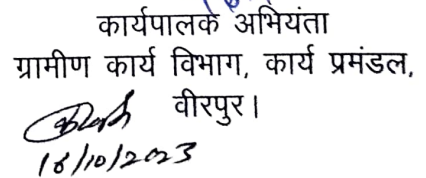 कार्यपालक अभियंता
ग्रामीण कार्य विभाग, कार्य प्रमंडल,
वीरपुर।
18/10/2023